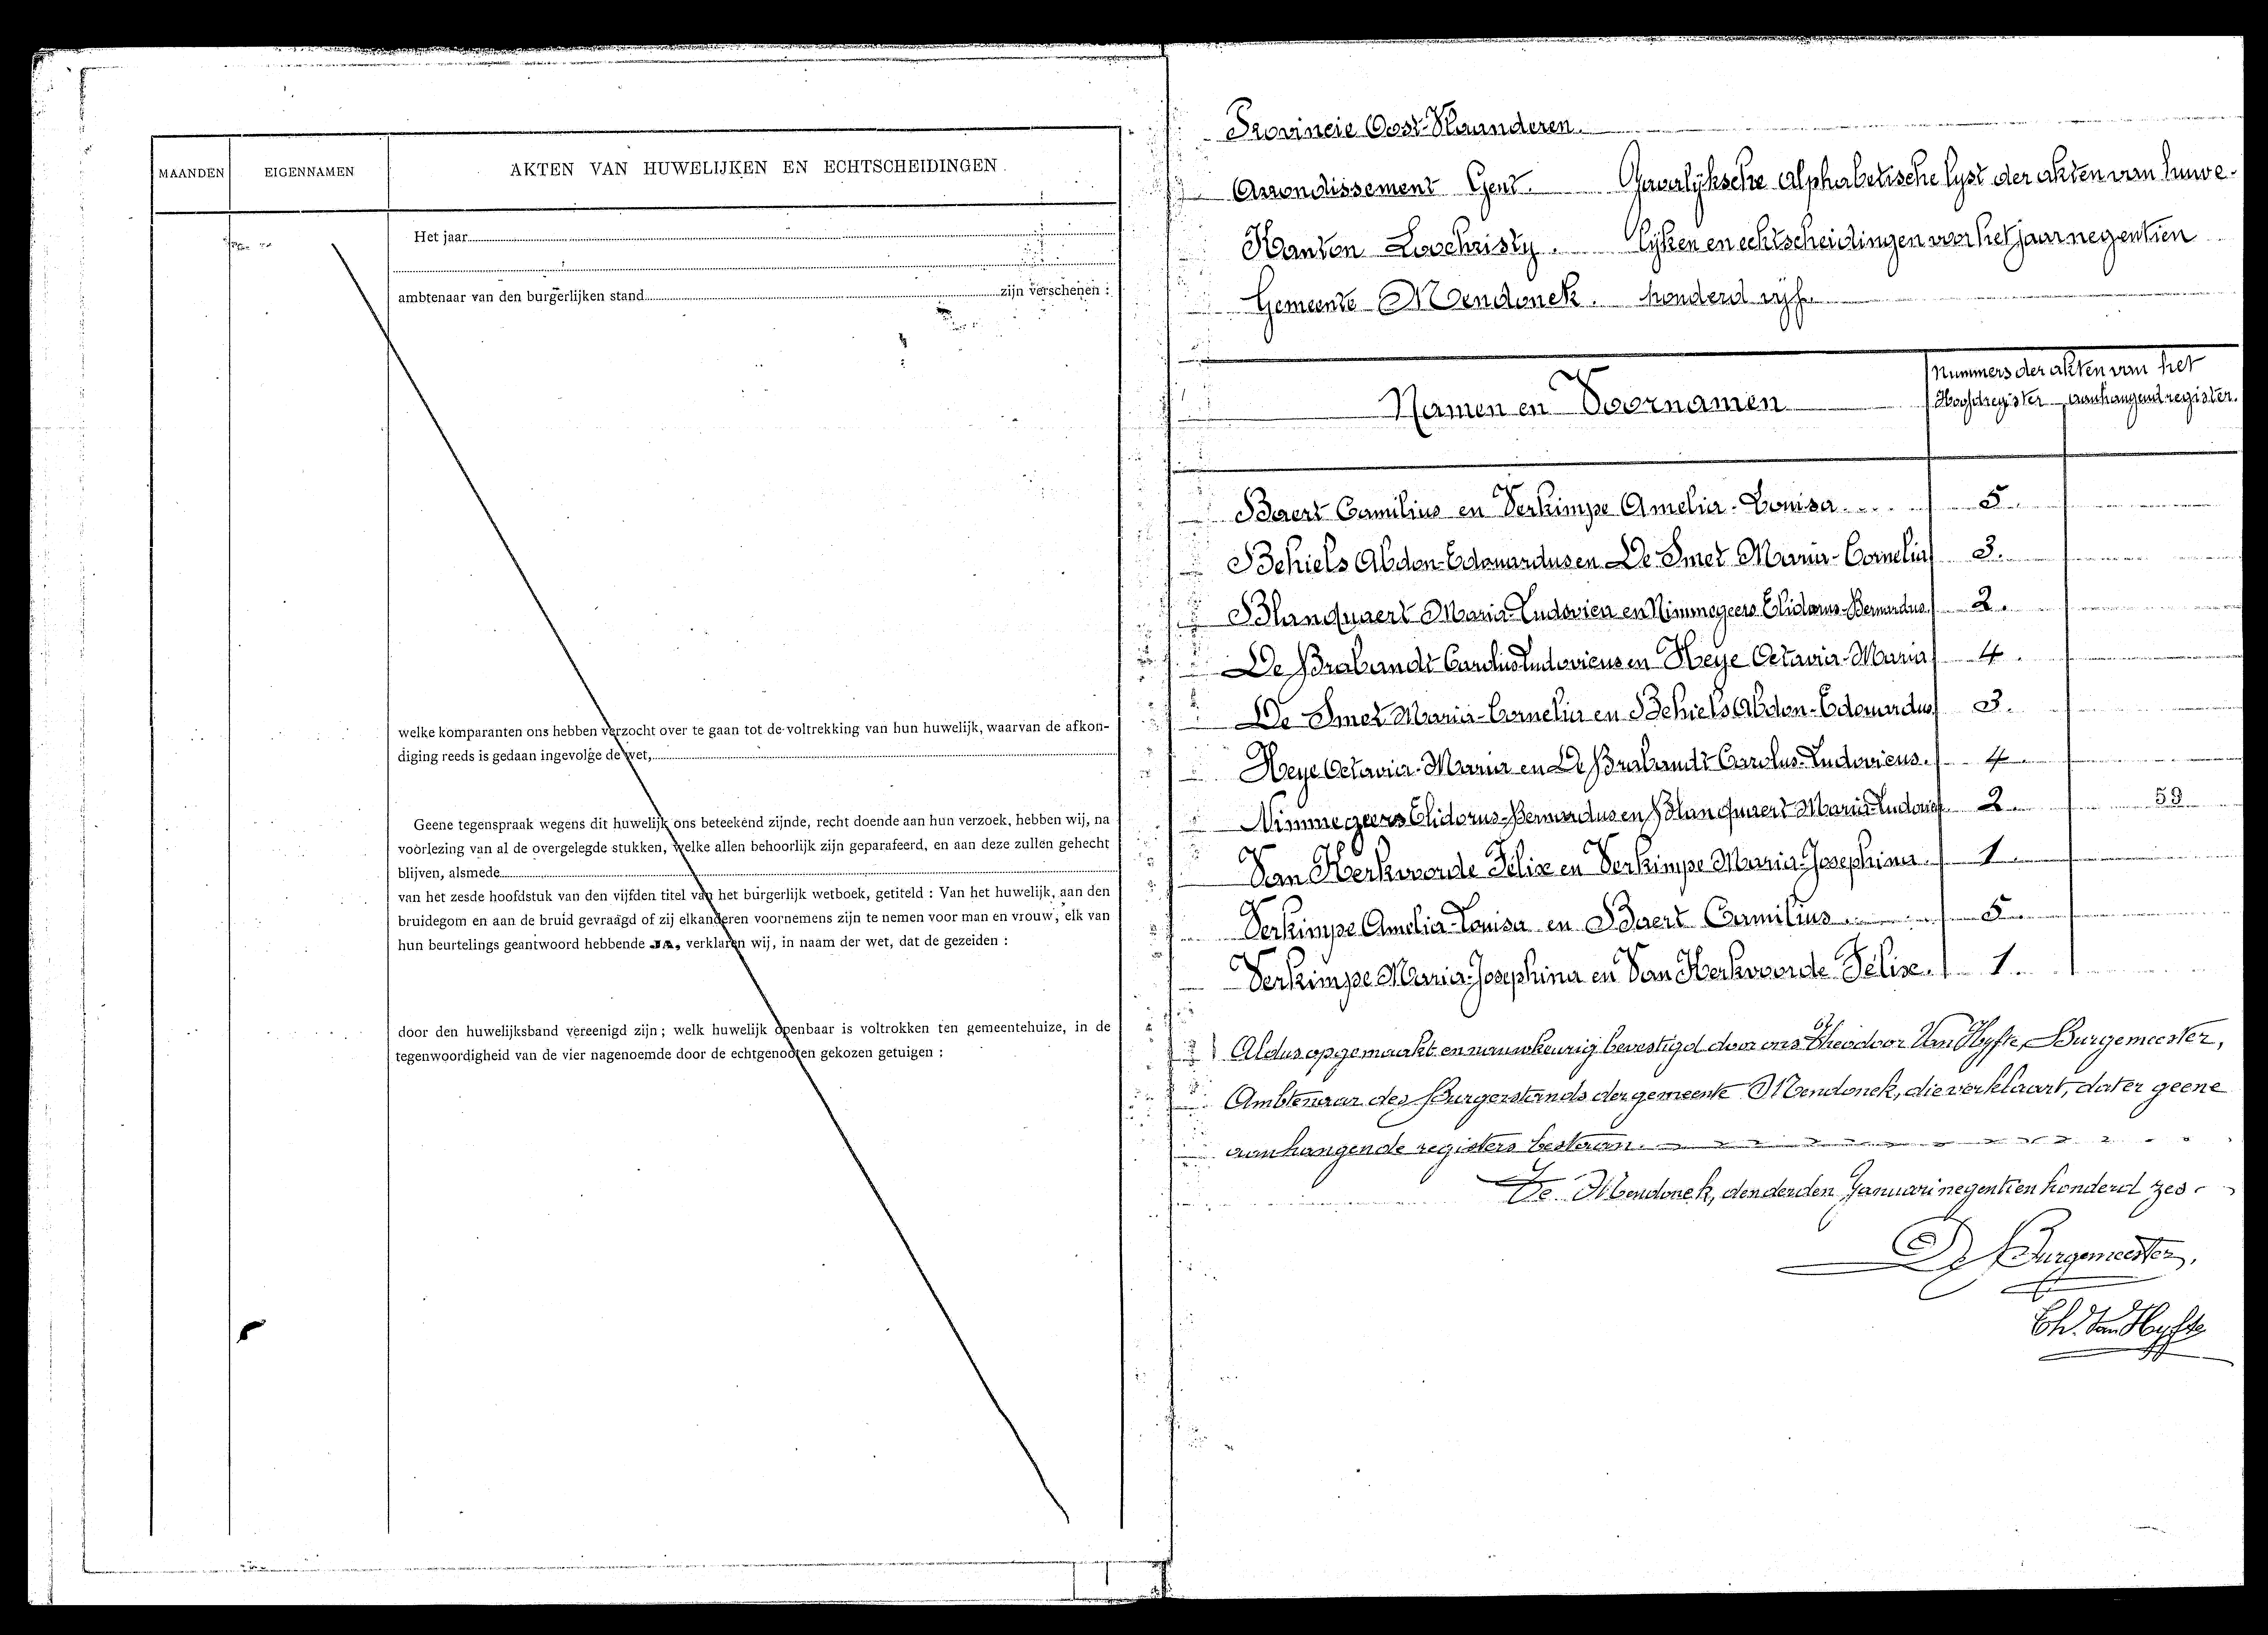 MAANDEN
EIGENNAMEN
AKTEN VAN HUWELIJKEN EN ECHTSCHEIDINGEN
Het jaar
ambtenaar van den burgerlijken stand zijn verschenen :
welke komparanten ons hebben verzocht over te gaan tot de voltrekking van hun huwelijk, waarvan de afkon-
diging reeds is gedaan ingevolge de wet,
Geene tegenspraak wegens dit huwelijk ons beteekend zijnde, recht doende aan hun verzoek, hebben wij, na
voorlezing van al de overgelegde stukken, welke allen behoorlijk zijn geparafeerd, en aan deze zullen gehecht
blijven, alsmede
van het zesde hoofdstuk van den vijfden titel van het burgerlijk wetboek, getiteld : Van het huwelijk, aan den
bruidegom en aan de bruid gevraagd of zij elkanderen voornemens zijn te nemen voor man en vrouw, elk van
hun beurtelings geantwoord hebbende JA, verklaren wij, in naam der wet, dat de gezeiden :
door den huwelijksband vereenigd zijn ; welk huwelijk openbaar is voltrokken ten gemeentehuize, in de
tegenwoordigheid van de vier nagenoemde door de echtgenooten gekozen getuigen :
Provincie Oost-Vlaanderen.
Arrondissement Gent. Jaarlijksche alphabetische lyst der akten van huwe-
Kanton Loochristy. lijken en echtscheidingen voor het jaar negentien
Gemeente Mendonck. honderd vijf.
Namen en Voornamen
Nummers der akten van het
Hoofdregister aanhangend register.
Baert Camilius en Verkimpe Amelia-Louisa 5.
Behiels Abdon-Edouardus en De Smet Maria-Cornelia 3.
Blanquaert Maria-Ludovica en Nimmegeers Elidorus-Bernardus 2.
De Brabandt Carolus Ludovicus en Heye Octavia-Maria 4.
De Smet Maria-Cornelia en Behiels Abdon-Edouardus 3.
Heye Octavia-Maria en De Brabandt Carolus-Ludovicus. 4.
Nimmegeers Elidorus-Bernardus en Blanquaert Maria-Ludovica 2. 59
Van Herkvoorde Felix en Verkimpe Maria-Josephina 1.
Verkimpe Amelia-Louisa en Baert Camilius 5.
Verkimpe Maria-Josephina en Van Herkvoorde Felix. 1.
Aldus opgemaakt en nauwkeurig bevestigd door ons Theodoor Van Hyfte, Burgemeester,
Ambtenaar des Burgerstands der gemeente Mendonck, die verklaart, dat er geene
aanhangende registers bestaan.
Te Mendonck, den derden Januari negentien honderd zes.
De Burgemeester,
Th. Van Hyfte